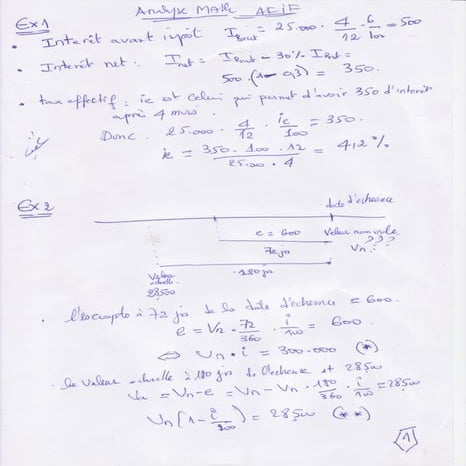 Analyse Math ACIF
Ex 1
• Interêt avant impôt I_Brut = 25.000 · 4/12 · 6/100 = 500
• Interêt net : I_net = I_Brut - 30% I_Brut =
500 · (1 - 0,3) = 350.
• taux effectif : ie est celui qui permet d'avoir 350 d'interêt
après 4 mois.
Donc 25.000 · 4/12 · ie/100 = 350.
ie = 350 · 100 · 12 / 25.000 · 4 = 4,2 %
Ex 2
date d'echeance
e = 600 Valeur nominale
72 jrs Vn ???
180 jrs
Valeur
actuelle
28500
• l'escompte à 72 jrs de la date d'echeance = 600.
e = Vn · 72/360 · i/100 = 600.
⇔ Vn · i = 300.000 (*)
• la valeur actuelle à 180 jrs de l'echeance est 28500
Va = Vn - e = Vn - Vn · 180/360 · i/100 = 28500
Vn (1 - i/200) = 28500 (**)
1